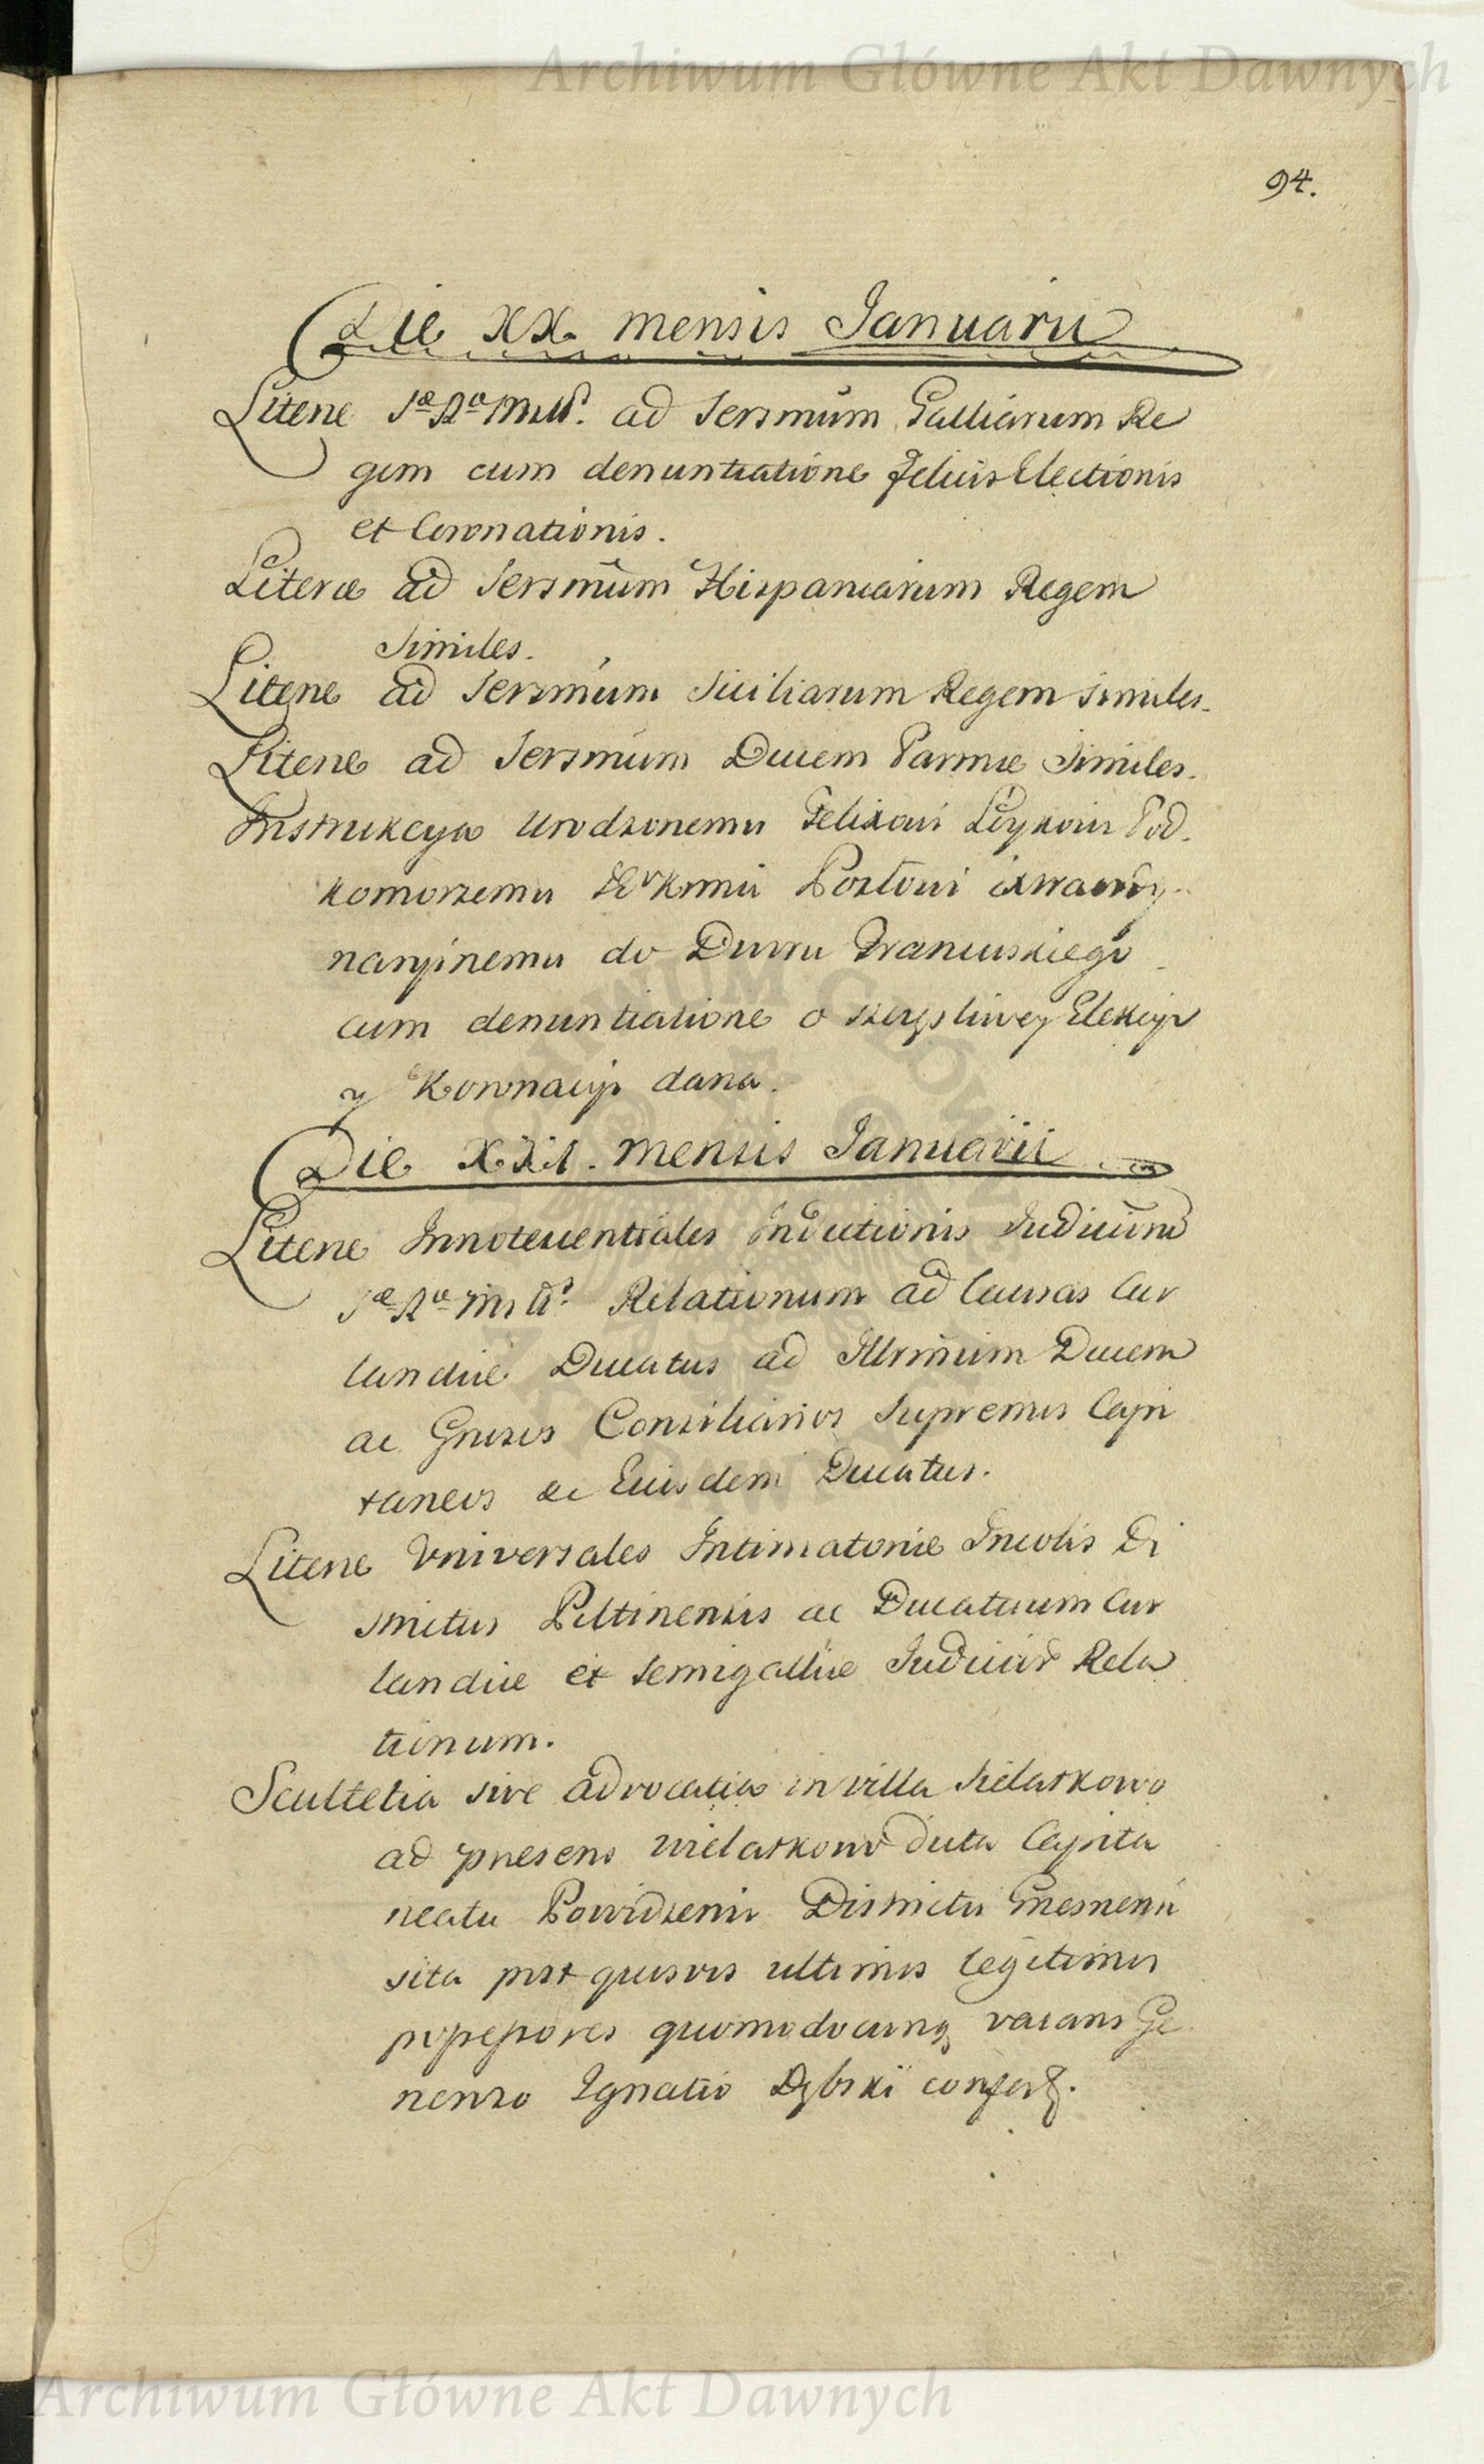 Archiwum Główne Akt Dawnych
94.
Die XX mensis Januarii
Literæ Sæ Ræ Mttis. ad Sersmum Galliarum Re
gem cum denuntiatione felicis Electionis
et Coronationis.
Literæ ad Sersmum Hispaniarum Regem
Similes.
Literæ ad Sersmum Siciliarum Regem Similes.
Literæ ad Sersmum Ducem Parmæ Similes.
Instrukcya Urodzonemu Felixowi Łoykowi Pod
komorzemu Posłowi extraordy
naryinemu do Dworu Francuskiego
cum denuntiatione o szczęśliwey Elekcyi
y Koronacyi dana.
Die XXI. mensis Januarii
Literæ Innotescentiales Indictionis Judiciorū
Sæ Ræ Mttis Relationum ad Causas Cur
landiæ Ducatus ad Illrmum Ducem
ac Gnrosos Consiliarios Supremos Capi
taneos ac Eiusdem Ducatus.
Literæ Universales Intimatoriæ Incolis Di
strictus Piltinensis ac Ducatuum Cur
landiæ et Semigalliæ Judicior Rela
tionum.
Scultetia sive advocatia in villa Sielatkowo
ad præsens Wielatkowo dicta Capita
neatu Powidzensi Districtu Gnesnensi
sita post quosvis ultimos legitimos
possessores quomodocunq vacans Ge
neroso Ignatio Dębski confert.
Archiwum Główne Akt Dawnych